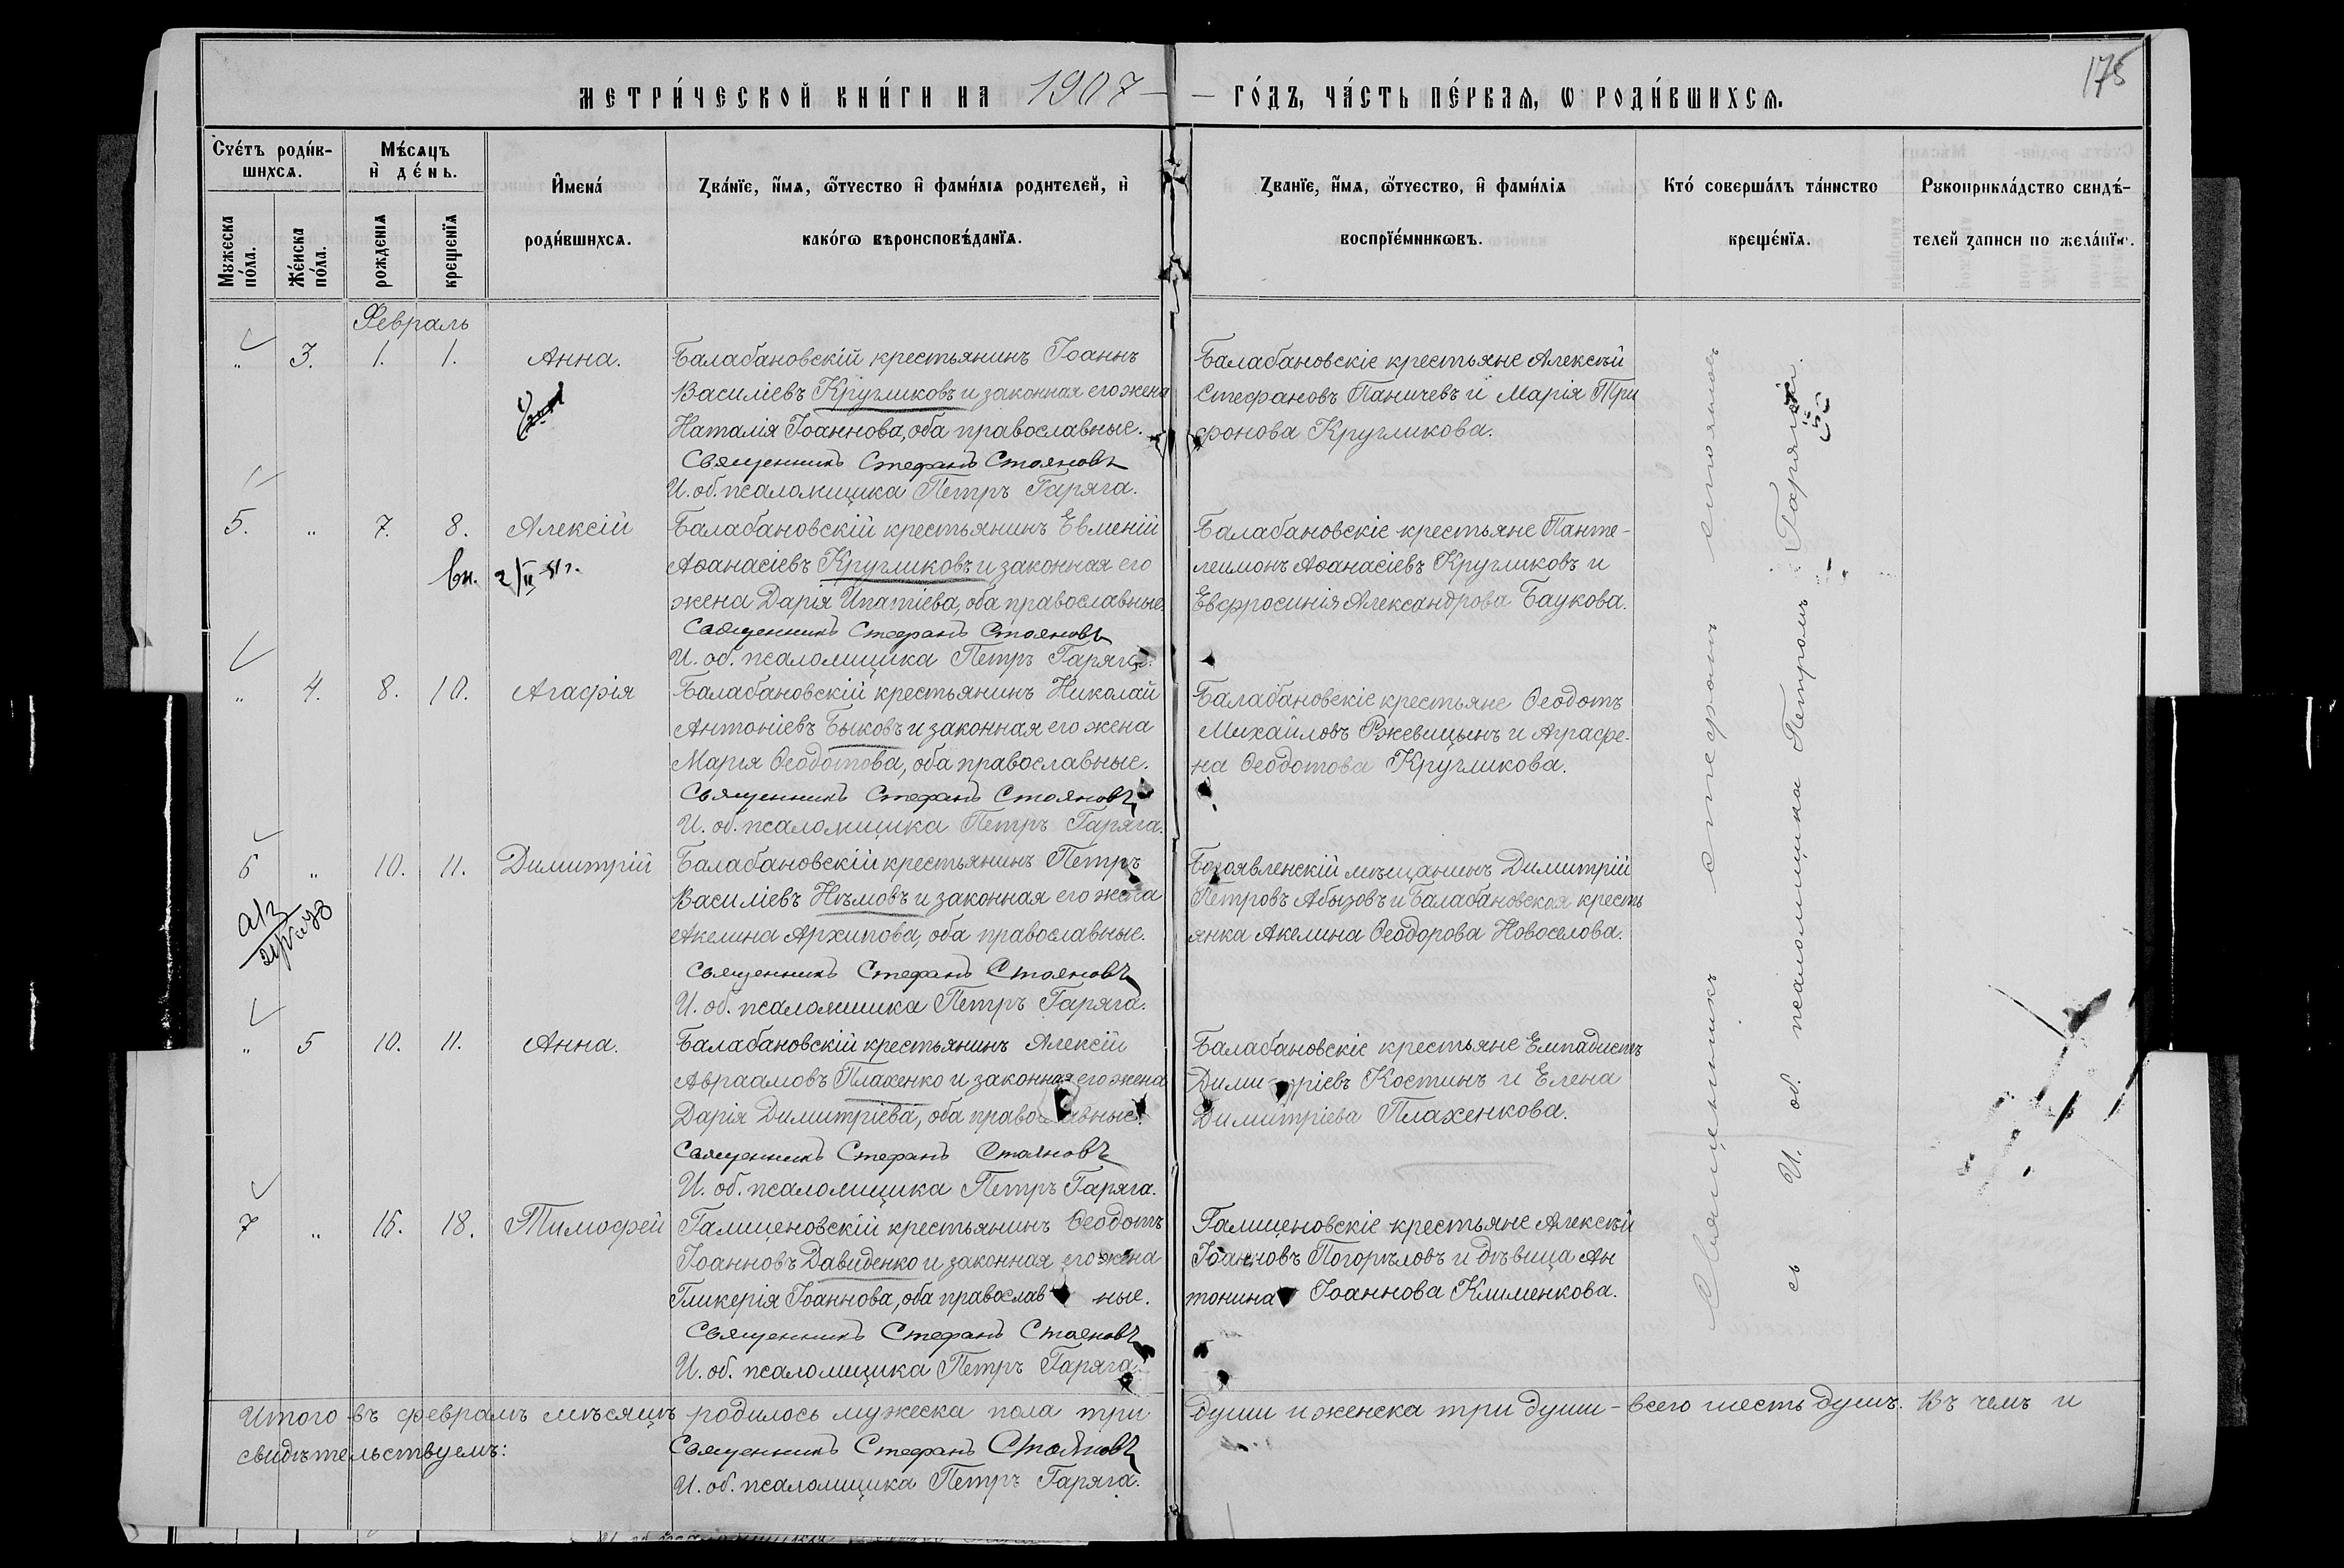 МЕТРИ́ЧЕСКОЙ КНИ́ГИ НА 1907
ГО́ДЪ, ЧА́СТЬ ПЕ́РВАѦ, Ѡ РОДИ́ВШИХСѦ.
175
Сче́тъ роди́в-
шихсѧ.
Мѣ́сѧцъ
и҆ де́нь.
И҆мена́
роди́вшихсѧ.
Зва́нїе, и҆́мѧ, ѻ҆́тчество и҆ фами́лїѧ родителей, и҆
како́гѡ вѣроисповѣ́данїѧ.
Званїе, и҆́мѧ, ѻ҆́тчество, и҆ фами́лїѧ
воспрїе́мникѡвъ.
Кто́ соверша́лъ та́инство
креще́нїѧ.
Рукоприкла́дство свидѣ́-
телей записи по жела́нїю.
Мужеска
по́ла.
Же́нска
по́ла.
рожденїѧ
крещенїѧ
Февраль
" 3. 1. 1. Анна.
Балабановскій крестьянинъ Іоаннъ
Василіевъ Кругликовъ и законная его жена
Наталія Іоаннова, оба православные.
Священникъ Стефанъ Стояновъ
И. об. псаломщика Петръ Гаряга.
Балабановскіе крестьяне Алексѣй
Стефановъ Паничевъ и Марія Три
фонова Кругликова.
5. " 7. 8. Алексій
вн. 2/II
Балабановскій крестьянинъ Евменій
Аѳанасіевъ Кругликовъ и законная его
жена Дарія Ипатіева, оба православные.
Священникъ Стефанъ Стояновъ
И. об. псаломщика Петръ Гаряга.
Балабановскіе крестьяне Панте-
леимонъ Аѳанасіевъ Кругликовъ и
Евфросинія Александрова Баукова.
" 4. 8. 10. Агафія
Балабановскій крестьянинъ Николай
Антоніевъ Быковъ и законная его жена
Марія Ѳеодотова, оба православные.
Священникъ Стефанъ Стояновъ
И. об. псаломщика Петръ Гаряга.
Балабановскіе крестьяне Ѳеодотъ
Михайловъ Ржевицынъ и Аграфе-
на Ѳеодотова Кругликова.
6 " 10. 11. Димитрій
Балабановскій крестьянинъ Петръ
Василіевъ Нѣмовъ и законная его жена
Акелина Архипова, оба православные.
Священникъ Стефанъ Стояновъ
И. об. псаломщика Петръ Гаряга.
Богоявленскій мѣщанинъ Димитрій
Петровъ Абызовъ и Балабановская кресть
янка Акелина Ѳеодорова Новоселова.
" 5 10. 11. Анна.
Балабановскій крестьянинъ Алексій
Авраамовъ Плахенко и законная его жена
Дарія Димитріева, оба православные.
Священникъ Стефанъ Стояновъ
И. об. псаломщика Петръ Гаряга.
Балабановскіе крестьяне Емпадистъ
Димитріевъ Костинъ и Елена
Димитріева Плахенкова.
7 " 16. 18. Тимофей
Галициновскій крестьянинъ Ѳеодотъ
Іоанновъ Давиденко и законная его жена
Гликерія Іоаннова, оба православные.
Священникъ Стефанъ Стояновъ
И. об. псаломщика Петръ Гаряга.
Галициновскіе крестьяне Алексѣй
Іоанновъ Погорѣловъ и дѣвица Ан
тонина Іоаннова Клименкова.
Священникъ Стефанъ Стояновъ
съ И. об. псаломщика Петромъ Гарягой.
Итого въ февралѣ мѣсяцѣ родилось мужеска пола три души и женска три души – всего шесть душъ. Въ чемъ и
свидѣтельствуемъ:
Священникъ Стефанъ Стояновъ
И. об. псаломщика Петръ Гаряга.